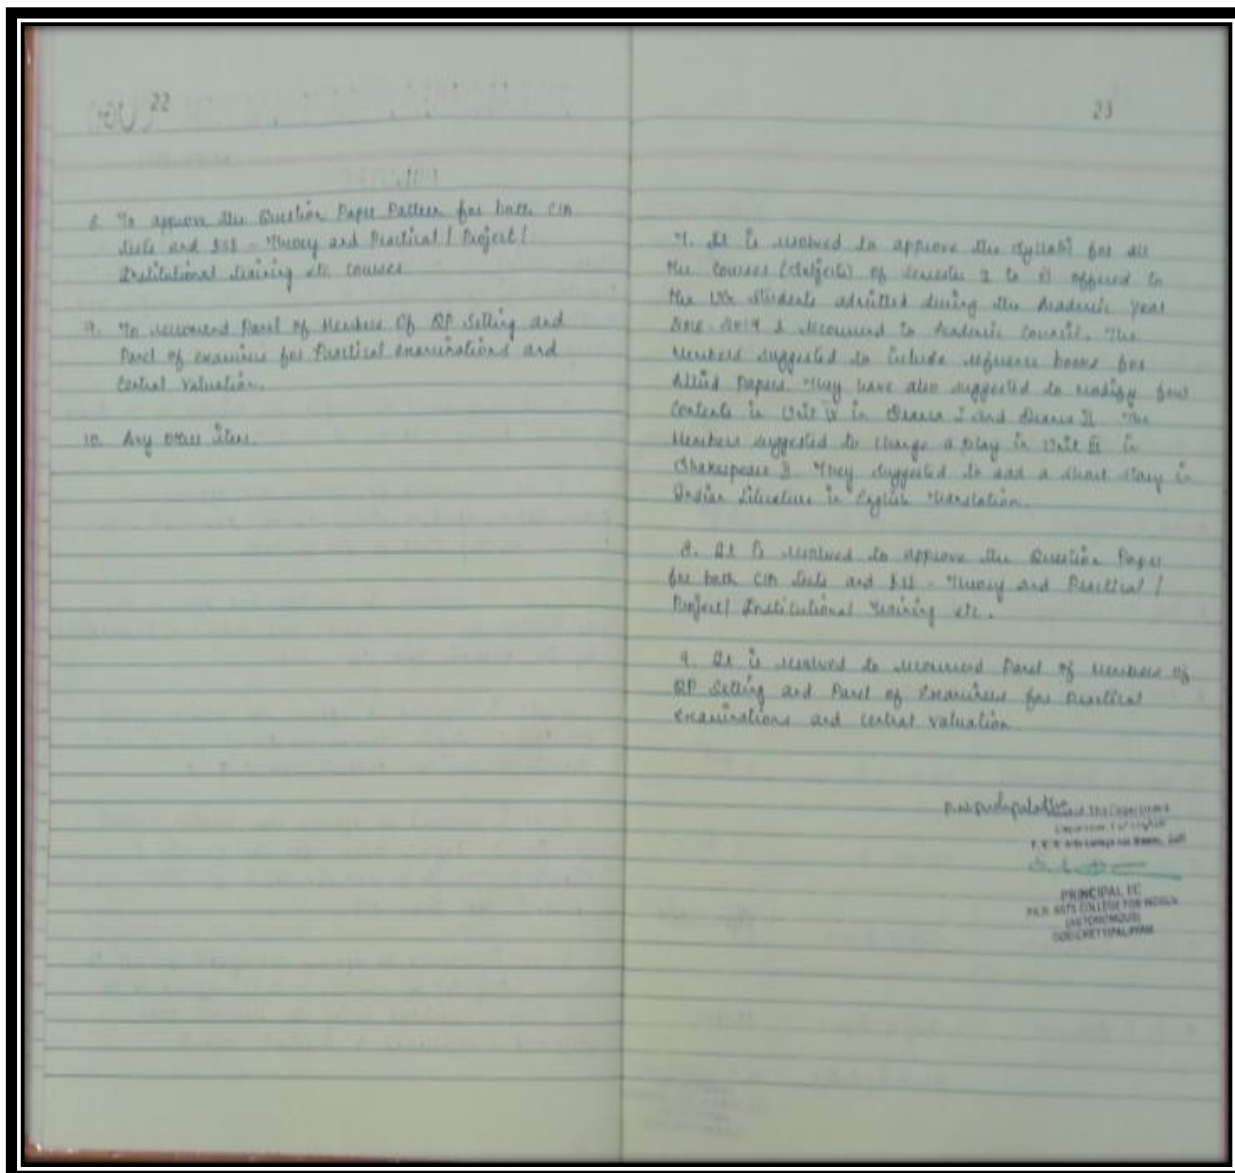 22
8. To approve the Question Paper Pattern for both CIA
tests and ESE - Theory and Practical / Project /
Institutional training etc courses
9. To recommend Panel of Members Of QP Setting and
Panel of examiners for Practical examinations and
Central Valuation.
10. Any other Item.
23
7. It is resolved to approve the Syllabi for all
the Courses (Subjects) of Semester I to VI offered to
the UG Students admitted during the Academic year
2018-2019 & recommend to Academic Council. The
Members suggested to include reference books for
Allied Papers. They have also suggested to modify few
Contents in Unit IV in Drama I and Drama II. The
Members suggested to change a play in Unit III in
Shakespeare II. They suggested to add a short story in
Indian Literature in English Translation.
8. It is resolved to approve the Question Paper
for both CIA tests and ESE - Theory and Practical /
Project / Institutional Training etc.
9. It is resolved to recommend Panel of Members of
QP Setting and Panel of Examiners for Practical
examinations and central valuation.
PRINCIPAL I/C
P.K.R. ARTS COLLEGE FOR WOMEN
(AUTONOMOUS)
GOBICHETTIPALAYAM